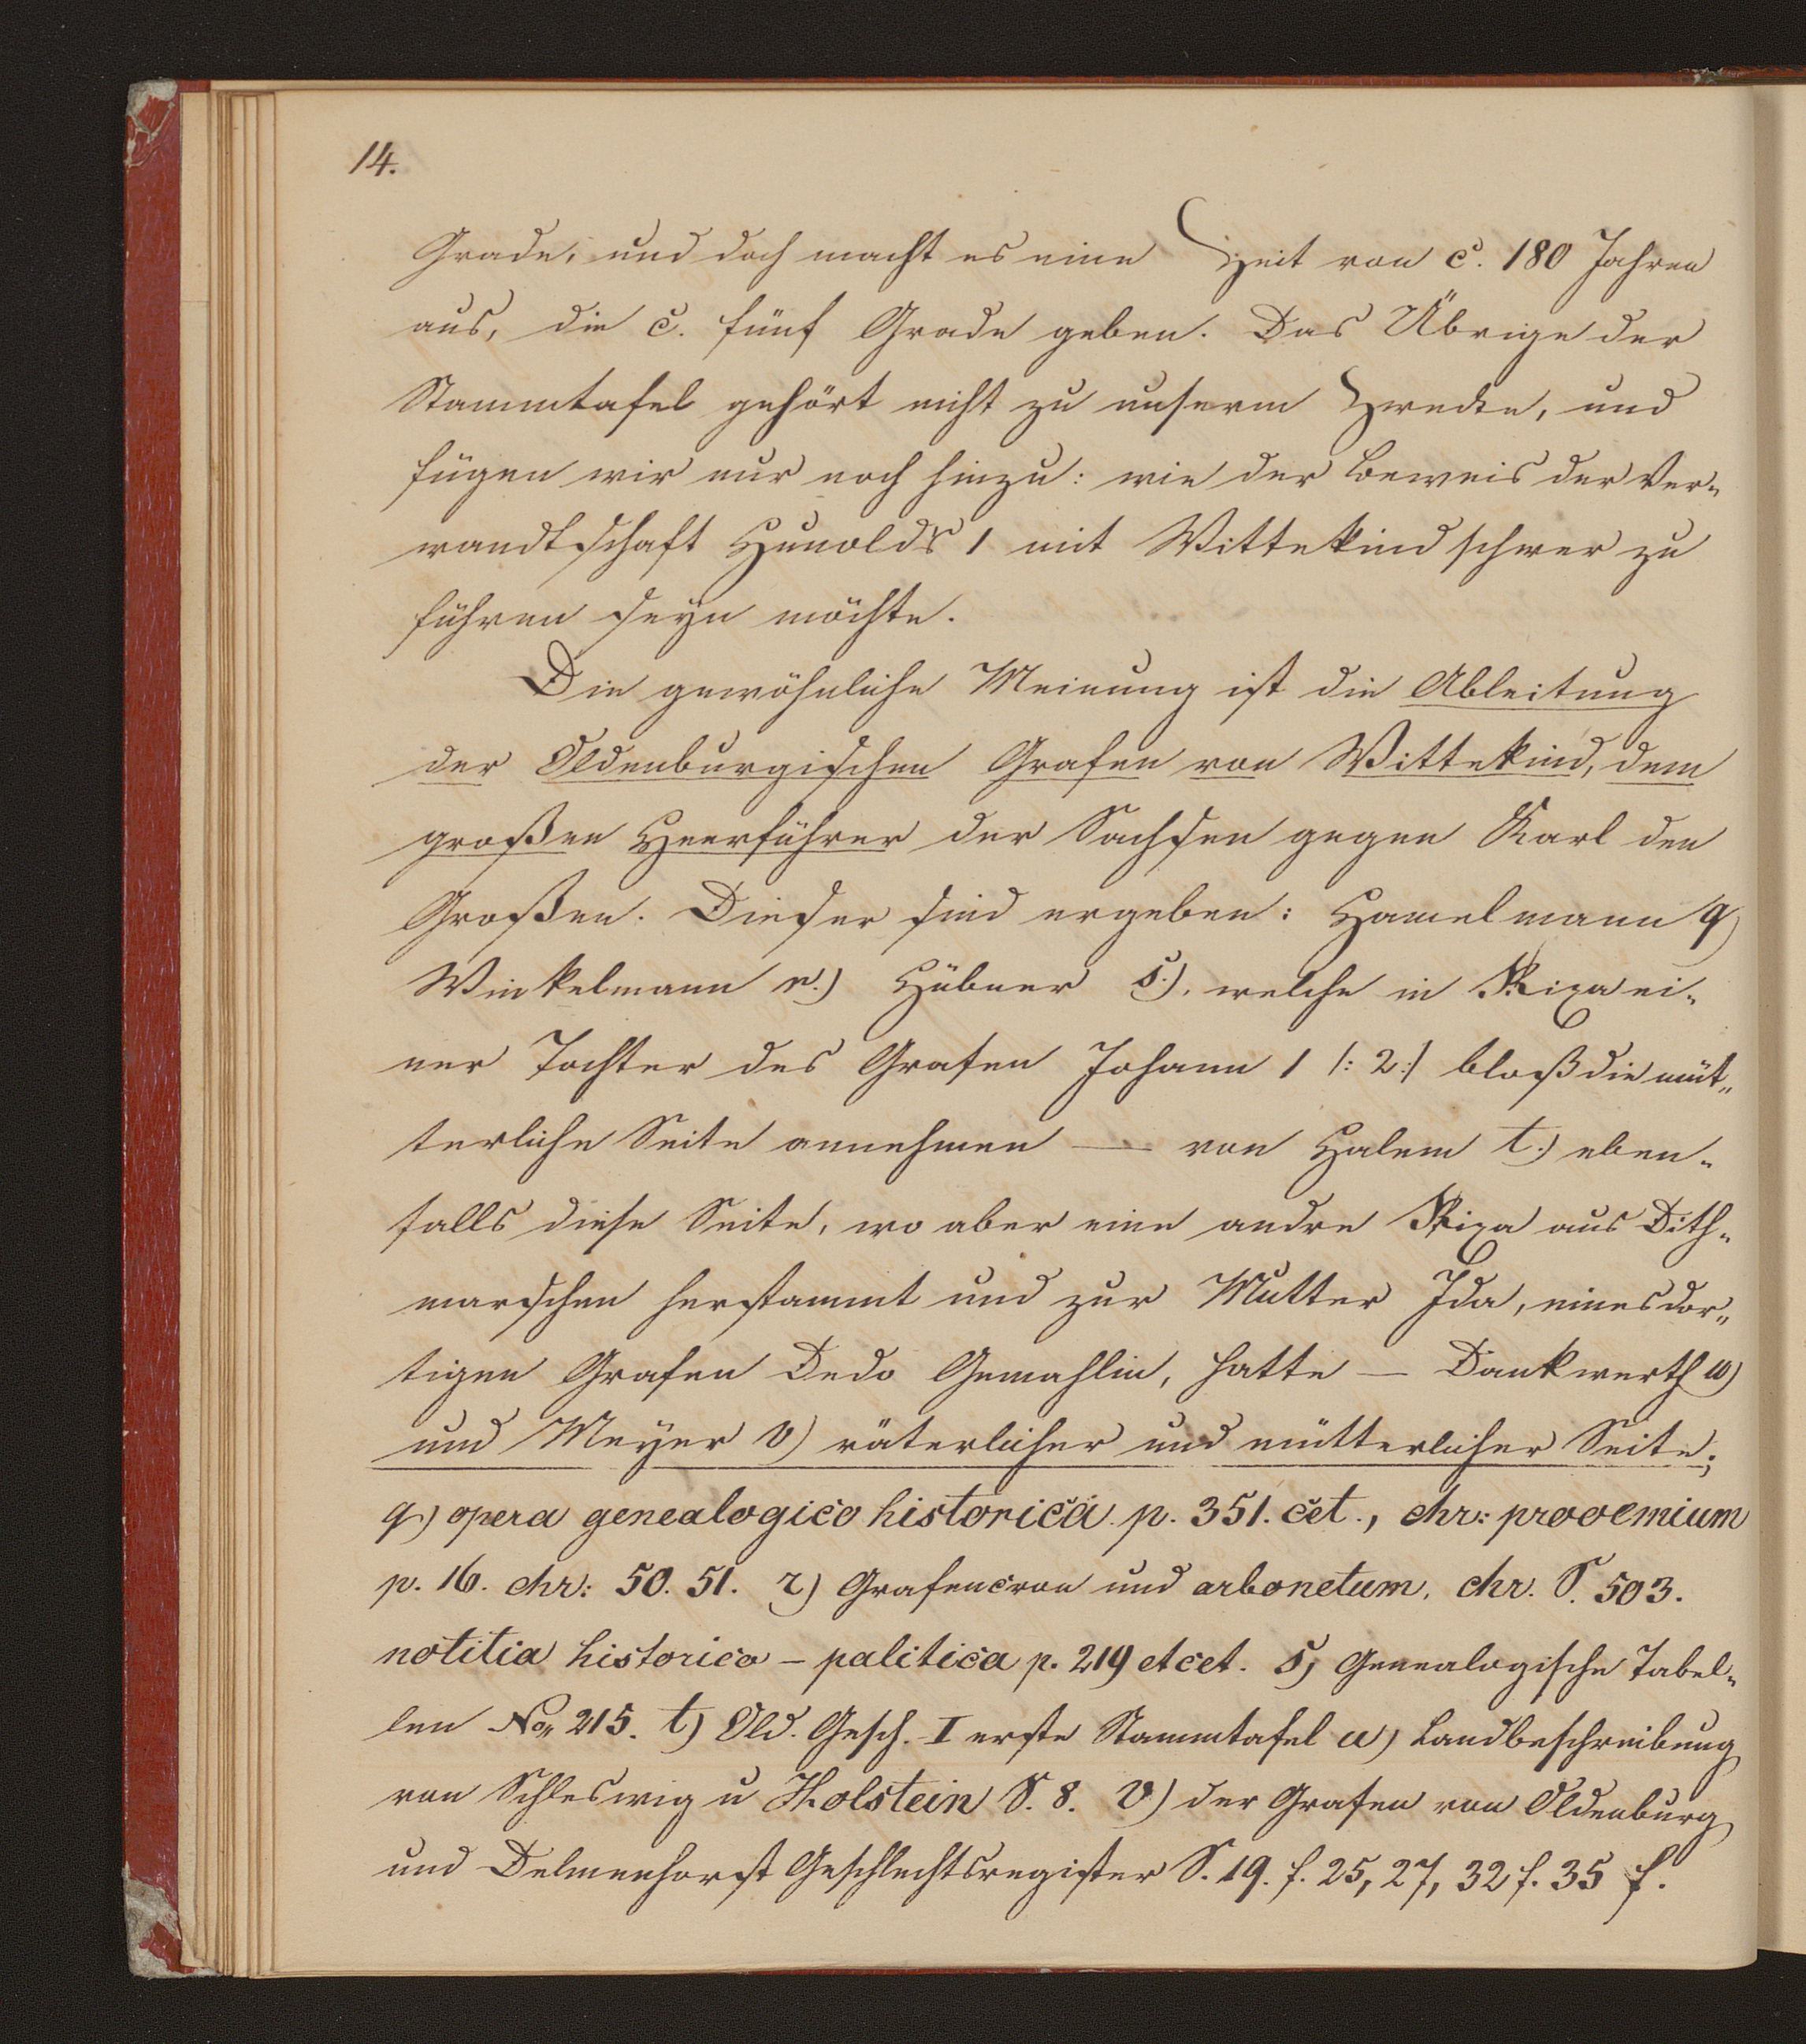 14.
Grade, und doch macht es eine Zeit von c. 180 Jahren
aus, die c. fünf Grade geben. Das Übrige der
Stammtafel gehört nicht zu unserm Zwecke, und
fügen wir nur noch hinzu: wie der Beweis der Ver-
wandtschaft Hunolds 1 mit Wittekind schwer zu
führen seyn möchte.
Die gewöhnliche Meinung ist die Ableitung
der Oldenburgischen Grafen von Wittekind, dem
großen Heerführer der Sachsen gegen Karl den
Großen. Dieser sind ergeben: Hamelmann q)
Winkelmann r.) Hübner s.), welche in Rixa ei-
ner Tochter des Grafen Johann 1 /: 2 :/ bloß die müt-
terliche Seite annehmen — von Halem t.) eben-
falls diese Seite, wo aber eine andre Rixa aus Dith-
marschen herstammt und zur Mutter Ida, eines dor-
tigen Grafen Dedo Gemahlin, hatte — Dankwerth u)
und Meyer v) väterlicher und mütterlicher Seite;
q) opera genealogico historica p. 351. cet., chr: prooemium
p. 16. chr: 50. 51. r) Grafencron und arbonetum, chr. S. 503.
notitia historico - palitica p. 219 et cet. s) Genealogische Tabel-
len No. 215. t) Old. Gesch. I erste Stammtafel u) Landbeschreibung
von Schleswig u Holstein S. 8. v) der Grafen von Oldenburg
und Delmenhorst Geschlechtsregister S. 19. f. 25, 27, 32 f. 35 f.